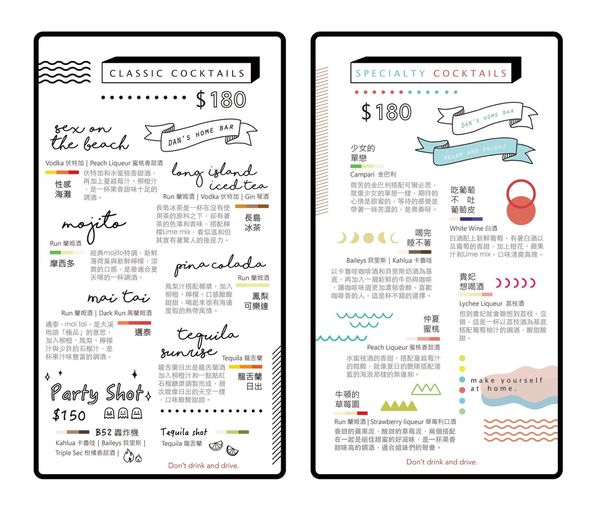 CLASSIC COCKTAILS
$180
DAN'S HOME BAR
sex on
the beach
Vodka 伏特加 | Peach Liqueur 蜜桃香甜酒
性感
海灘
伏特加和水蜜桃香甜酒,
再加上蔓越莓汁、柳橙汁
,是一杯果香甜味十足的
調酒。
long island
iced tea
Run 蘭姆酒 | Vodka 伏特加 | Gin 琴酒
長島冰茶是一杯在沒有使
用茶的原料之下,卻有著
茶的色澤和香味,搭配檸
檬Lime mix,看似溫和但
其實有著驚人的後座力。
長島
冰茶
mojito
Run 蘭姆酒
摩西多
經典mojito特調,新鮮
薄荷葉與新鮮檸檬,涼
爽的口感,是最適合夏
天喝的一杯調酒。
pina colada
Run 蘭姆酒
鳳梨汁搭配椰漿,加入
檸檬、柳橙,口感酸酸
甜甜,喝起來很有海邊
度假的熱帶風情。
鳳梨
可樂達
mai tai
Run 蘭姆酒 | Dark Run 黑蘭姆酒
邁泰,mai tai,是大溪
地語「極品」的意思,
加入鳳梨、柳橙、檸檬
汁與少許的石榴汁,是
一杯果汁味豐富的調酒。
邁泰
tequila
sunrise
Tequila 龍舌蘭
龍舌蘭日出是龍舌蘭酒
加入柳橙汁和一點點紅
石榴糖漿調製而成,層
次就像日出的天空一樣
,口味酸酸甜甜。
龍舌蘭
日出
Party Shot
$150
B52 轟炸機
Kahlua 卡魯哇 | Baileys 貝里斯 |
Triple Sec 柑橘香甜酒 |
Tequila shot
Tequila 龍舌蘭
Don't drink and drive.
SPECIALTY COCKTAILS
$180
DAN'S HOME BAR
RELAX AND ENJOY!
少女的
單戀
Campari 金巴利
微苦的金巴利搭配可爾必思,
就像少女的單戀一樣,期待的
心情是甜蜜的,等待的感覺是
帶著一絲苦澀的,是青春呀。
吃葡萄
不 吐
葡萄皮
White Wine 白酒
白酒配上新鮮葡萄,有著白酒以
及葡萄的香甜,加上橙花、蘋果
汁和Lime mix,口味清爽高雅。
喝完
睡不著
Baileys 貝里斯 | Kahlua 卡魯哇
以卡魯哇咖啡酒和貝里斯奶酒為基
底,再加入一層新鮮的牛奶與咖啡
,讓咖啡味道更加濃郁香醇,喜歡
咖啡香的人,這是一杯不錯的選擇。
貴妃
想喝酒
Lychee Liqueur 荔枝酒
想到貴妃就會聯想到荔枝,沒
錯,這是一杯以荔枝酒為基底
搭配葡萄柚汁的調酒,酸甜酸
甜。
仲夏
蜜桃
Peach Liqueur 蜜桃香甜酒
水蜜桃酒的香甜,搭配蔓越莓汁
的微酸,就像夏日的艷陽搭配湛
藍的海浪那樣的無違和。
make yourself
at home.
牛頓的
草莓園
Run 蘭姆酒 | Strawberry liqueur 草莓利口酒
香甜的蘋果泥,酸甜的草莓泥,兩個搭配
在一起是絕佳甜蜜的好滋味,是一杯果香
甜味高的調酒,適合姐妹們的聚會。
Don't drink and drive.